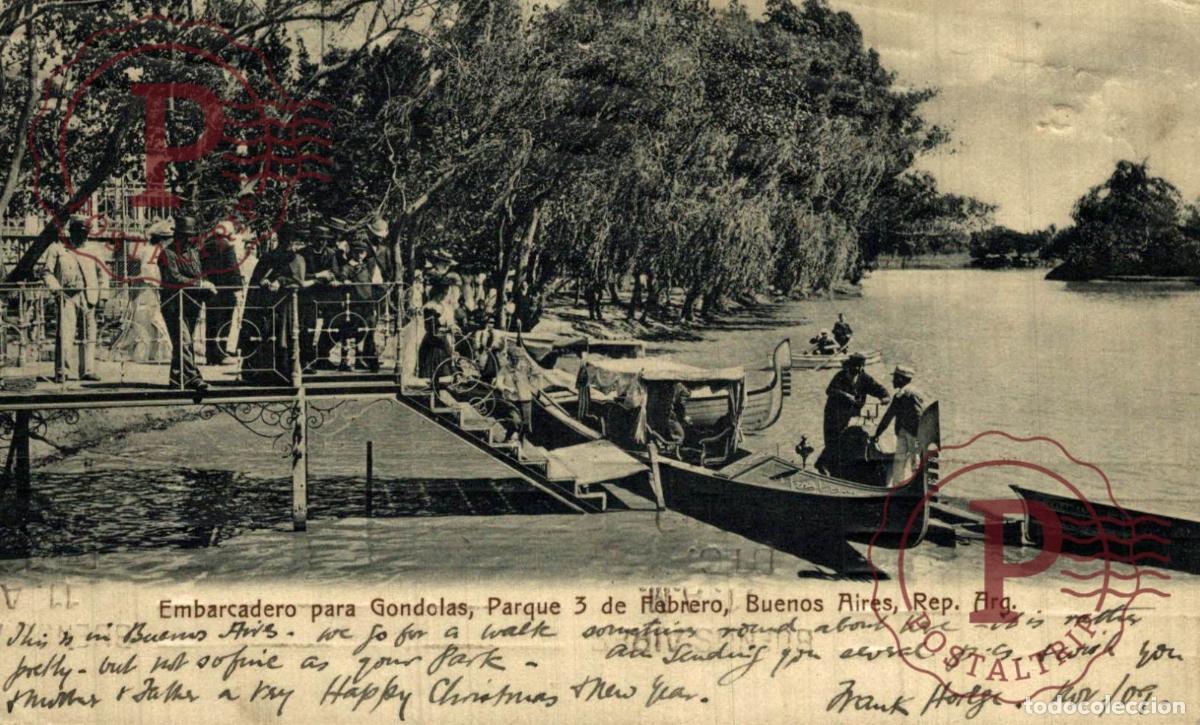 Embarcadero para Gondolas, Parque 3 de Febrero, Buenos Aires, Rep. Arg.
This is in Buenos Aires - we go for a walk sometimes round about here - it is rather
pretty - but not so fine as your Park - am sending you several views & wish you
& Mother & Father a very Happy Christmas & New Year. Frank Nov
P
POSTALTRIP
P
POSTALTRIP
todocoleccion